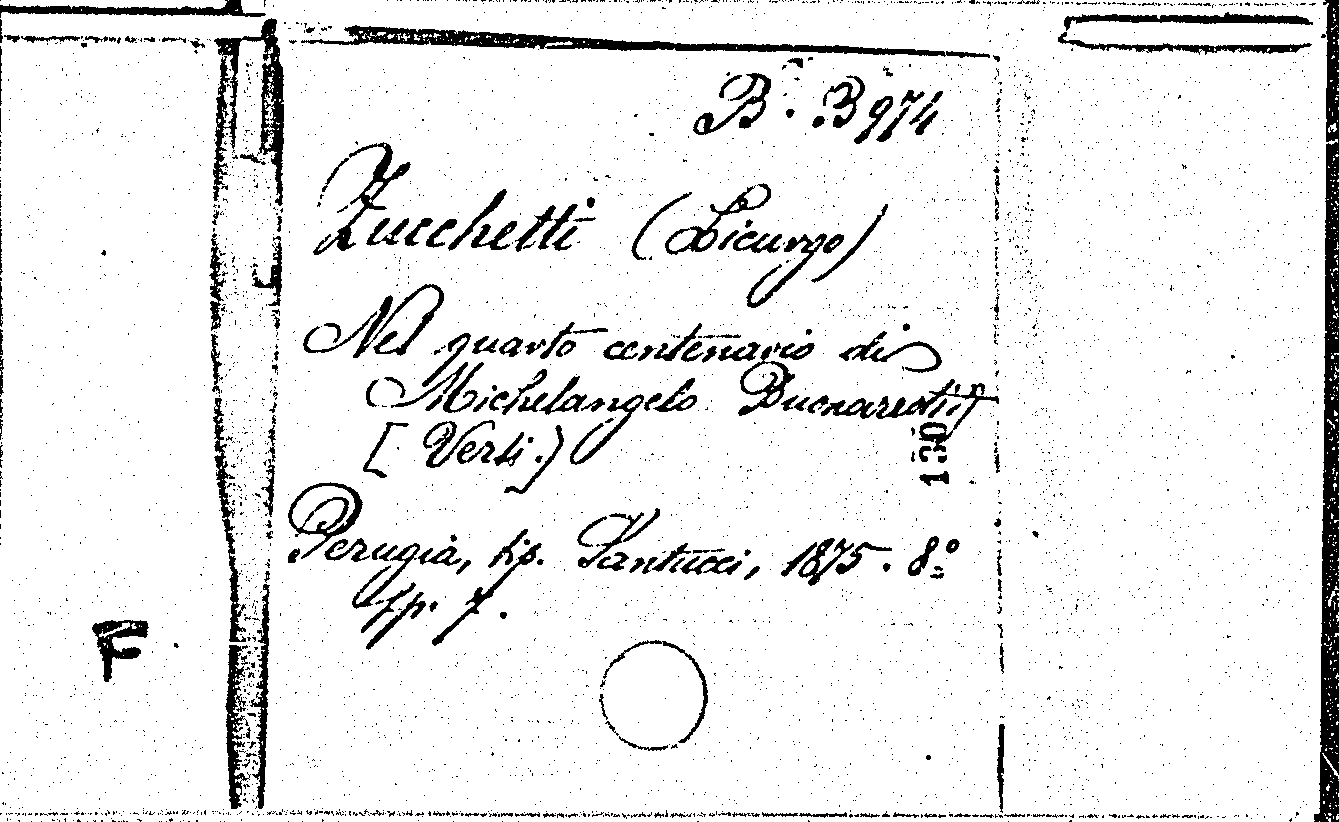 B. B 974
Zucchetti (Licurgo)
Nel quarto centenario di
Michelangelo Buonarroti
[Versi.]
Perugia, tip. Santucci, 1875. 8º
pp. 7.
130
F